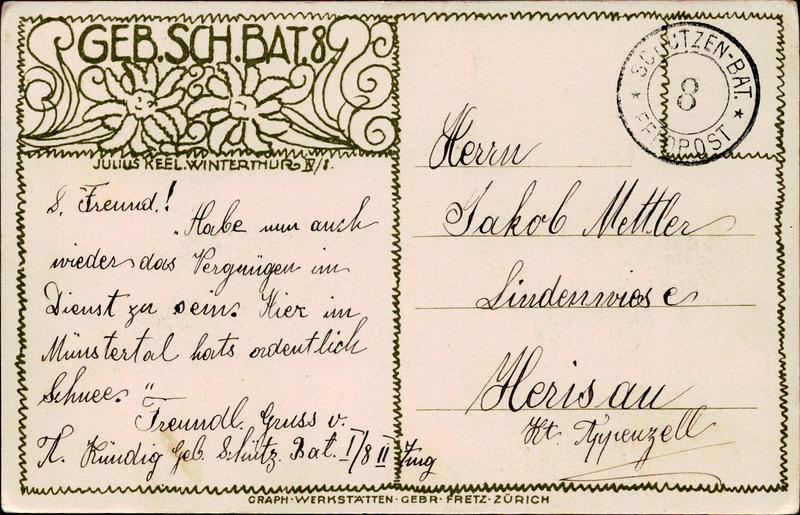 GEB.SCH.BAT.8.
JULIUS KEEL.WINTERTHUR IV/8.
L. Freund!
Habe nun auch
wieder das Vergnügen im
Dienst zu sein. Hier im
Münstertal hats ordentlich
Schnee.
Freundl. Gruss v.
Kündig Geb. Schütz. Bat. I/8 II Zug
SCHÜTZEN-BAT.
8
FELDPOST
Herrn
Jakob Mettler
Lindenwiese
Herisau
Kt. Appenzell
GRAPH·WERKSTÄTTEN·GEBR·FRETZ·ZÜRICH